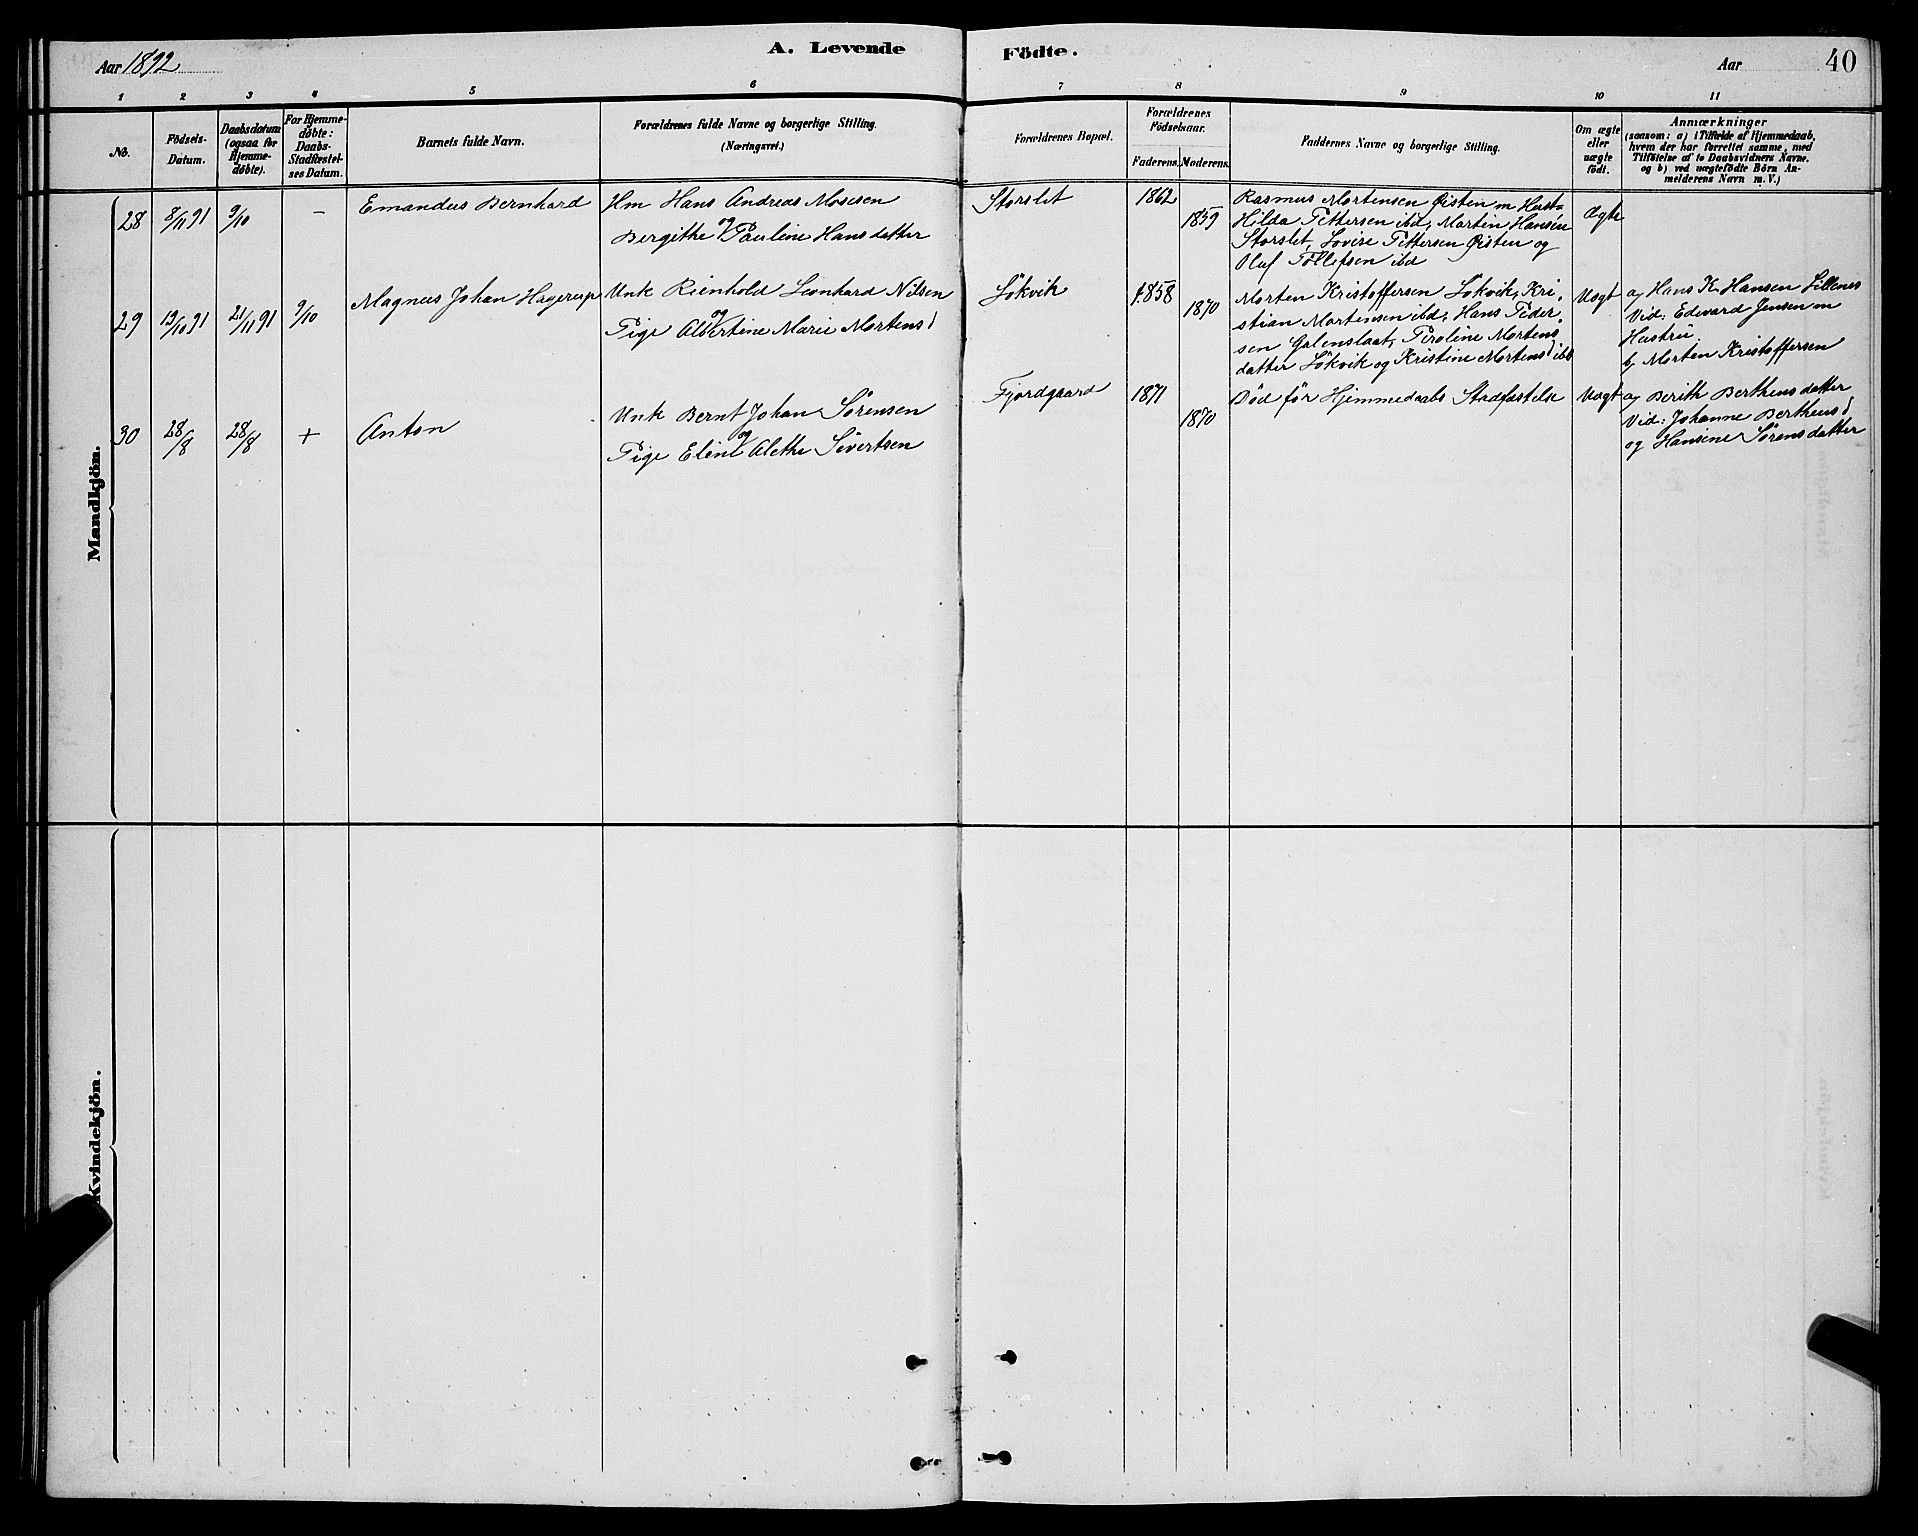 Aar 1892
A. Levende Födte.
Aar
40
1 2 3 4 5 6 7 8 9 10 11
No.
Födsels-Datum.
Daabsdatum (ogsaa for Hjemme-döbte).
For Hjemme-döbte: Daabs-Stadfæstel-ses Datum.
Barnets fulde Navn.
Forældrenes fulde Navne og borgerlige Stilling.
(Næringsvei.)
Forældrenes Bopæl.
Forældrenes Födselsaar.
Faderens. Moderens.
Faddernes Navne og borgerlige Stilling.
Om ægte eller uægte födt.
Anmærkninger
(saasom: a) i Tilfælde af Hjemmedaab,
hvem der har forrettet samme, med
Tilföielse af to Daabsvidners Navne.
og b) ved uægtefödte Börn An-
melderens Navn m. V.)
Mandkjön.
28 8/11 91 9/10 – Emandus Bernhard
Hm Hans Andreas Mosesen
og
Bergithe Pauline Hansdatter
Storslet
1862
1859
Rasmus Mortensen Øisten m Hust=
Hilda Pettersen ibd, Martin Hansen
Storslet, Lovise Pettersen Øisten og
Oluf Tollefsen ibd
Ægte
29 19/10 91 21/11 91 9/10 Magnus Johan Hagerup
Unk Rienhold Leonhard Nilsen
og
Pige Albertine Marie Mortensd
Lökvik
1858
1870
Morten Kristoffersen Lökvik, Kri-
stian Mortensen ibd, Hans Peder-
sen Galenslaat, Peroline Mortens
datter Lökvik og Kristine Mortensd ibd
Uægt
a, Hans K. Hansen Lillenes
Vid: Edevard Jensen m
Hustru
b, Morten Kristoffersen
30 28/8 28/8 + Anton
Unk Bernt Johan Sørensen
og
Pige Eline Alethe Sivertsen
Fjordgaard
1871
1870
Død før Hjemmedaabs Stadfæstelse
Uægt
a, Berith Berthensdatter
Vid: Johanne Berthensd
og Hansine Sørensdatter
Kvindekjön.